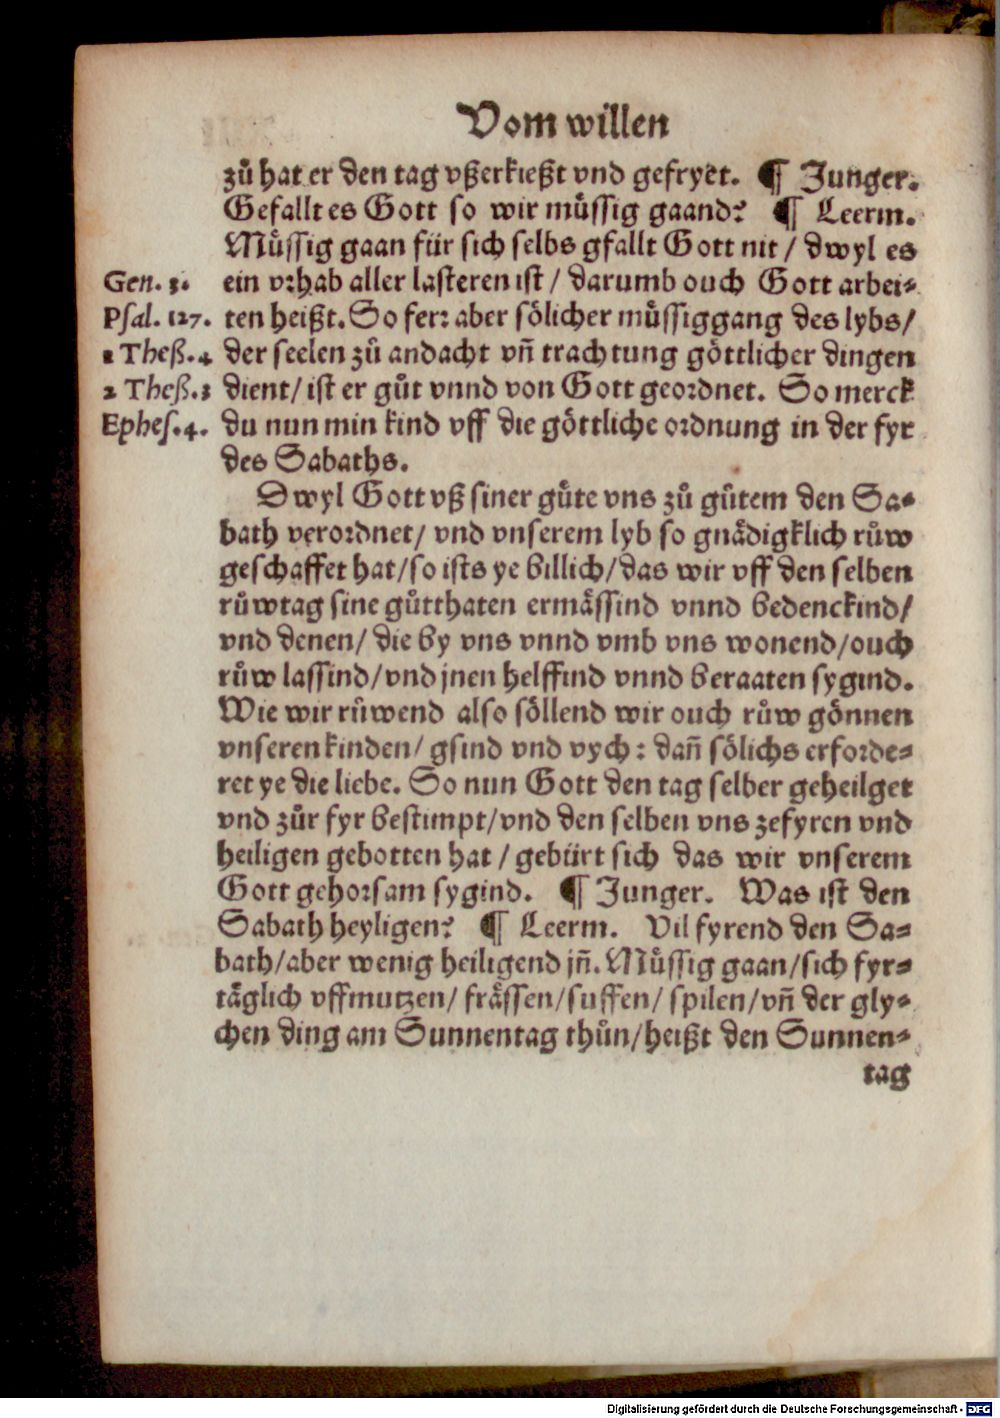 Vom willen
zuͦ hat er den tag vßerkießt vnd gefryet. ¶ Junger.
Gefallt es Gott so wir muͤssig gaand? ¶ Leerm.
Muͤssig gaan für sich selbs gfallt Gott nit / dwyl es
Gen. 3. ein vrhab aller lasteren ist / darumb ouch Gott arbei-
Psal. 127. ten heißt. So ferr aber soͤlicher muͤssiggang des lybs/
1 Theß. 4 der seelen zuͦ andacht vñ trachtung goͤttlicher dingen
2 Theß. 3 dient/ ist er guͦt vnnd von Gott geordnet. So merck
Ephes. 4. du nun min kind vff die goͤttliche ordnung in der fyr
des Sabaths.
Dwyl Gott vß siner guͤte vns zuͦ guͦtem den Sa-
bath verordnet/ vnd vnserem lyb so gnaͤdigklich ruͦw
geschaffet hat/so ists ye billich/das wir vff den selben
ruͦwtag sine guͦtthaten ermaͤssind vnnd bedenckind/
vnd denen/ die by vns vnnd vmb vns wonend/ouch
ruͦw lassind/vnd jnen helffind vnnd beraaten sygind.
Wie wir ruͦwend also soͤllend wir ouch ruͦw goͤnnen
vnseren kinden/ gsind vnd vych: dañ soͤlichs erforde-
ret ye die liebe. So nun Gott den tag selber geheilget
vnd zuͦr fyr bestimpt/vnd den selben vns zefyren vnd
heiligen gebotten hat / gebürt sich das wir vnserem
Gott gehorsam sygind. ¶ Junger. Was ist den
Sabath heyligen? ¶ Leerm. Vil fyrend den Sa-
bath/aber wenig heiligend jñ. Muͤssig gaan/sich fyr-
taͤglich vffmutzen/ fraͤssen/suffen/ spilen/vñ der gly-
chen ding am Sunnentag thuͦn/heißt den Sunnen-
tag
Digitalisierung gefördert durch die Deutsche Forschungsgemeinschaft - DFG